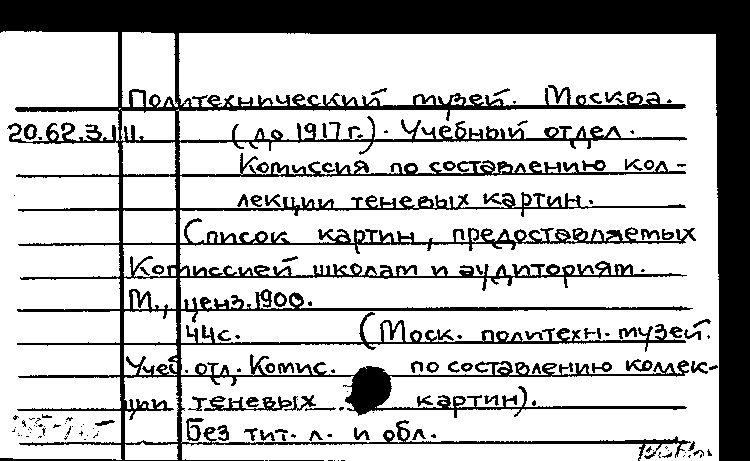 Политехнический музей. Москва.
20.62.3.111. (до 1917 г.). Учебный отдел.
Комиссия по составлению кол-
лекции теневых картин.
Список картин, предоставляемых
Комиссией школам и аудиториям.
М., ценз. 1900.
44с. (Моск. политехн. музей.
Учеб. отд. Комис. по составлению коллек-
ции теневых картин).
Без тит. л. и обл.